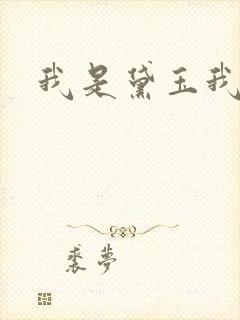 我是黛玉我
裘梦